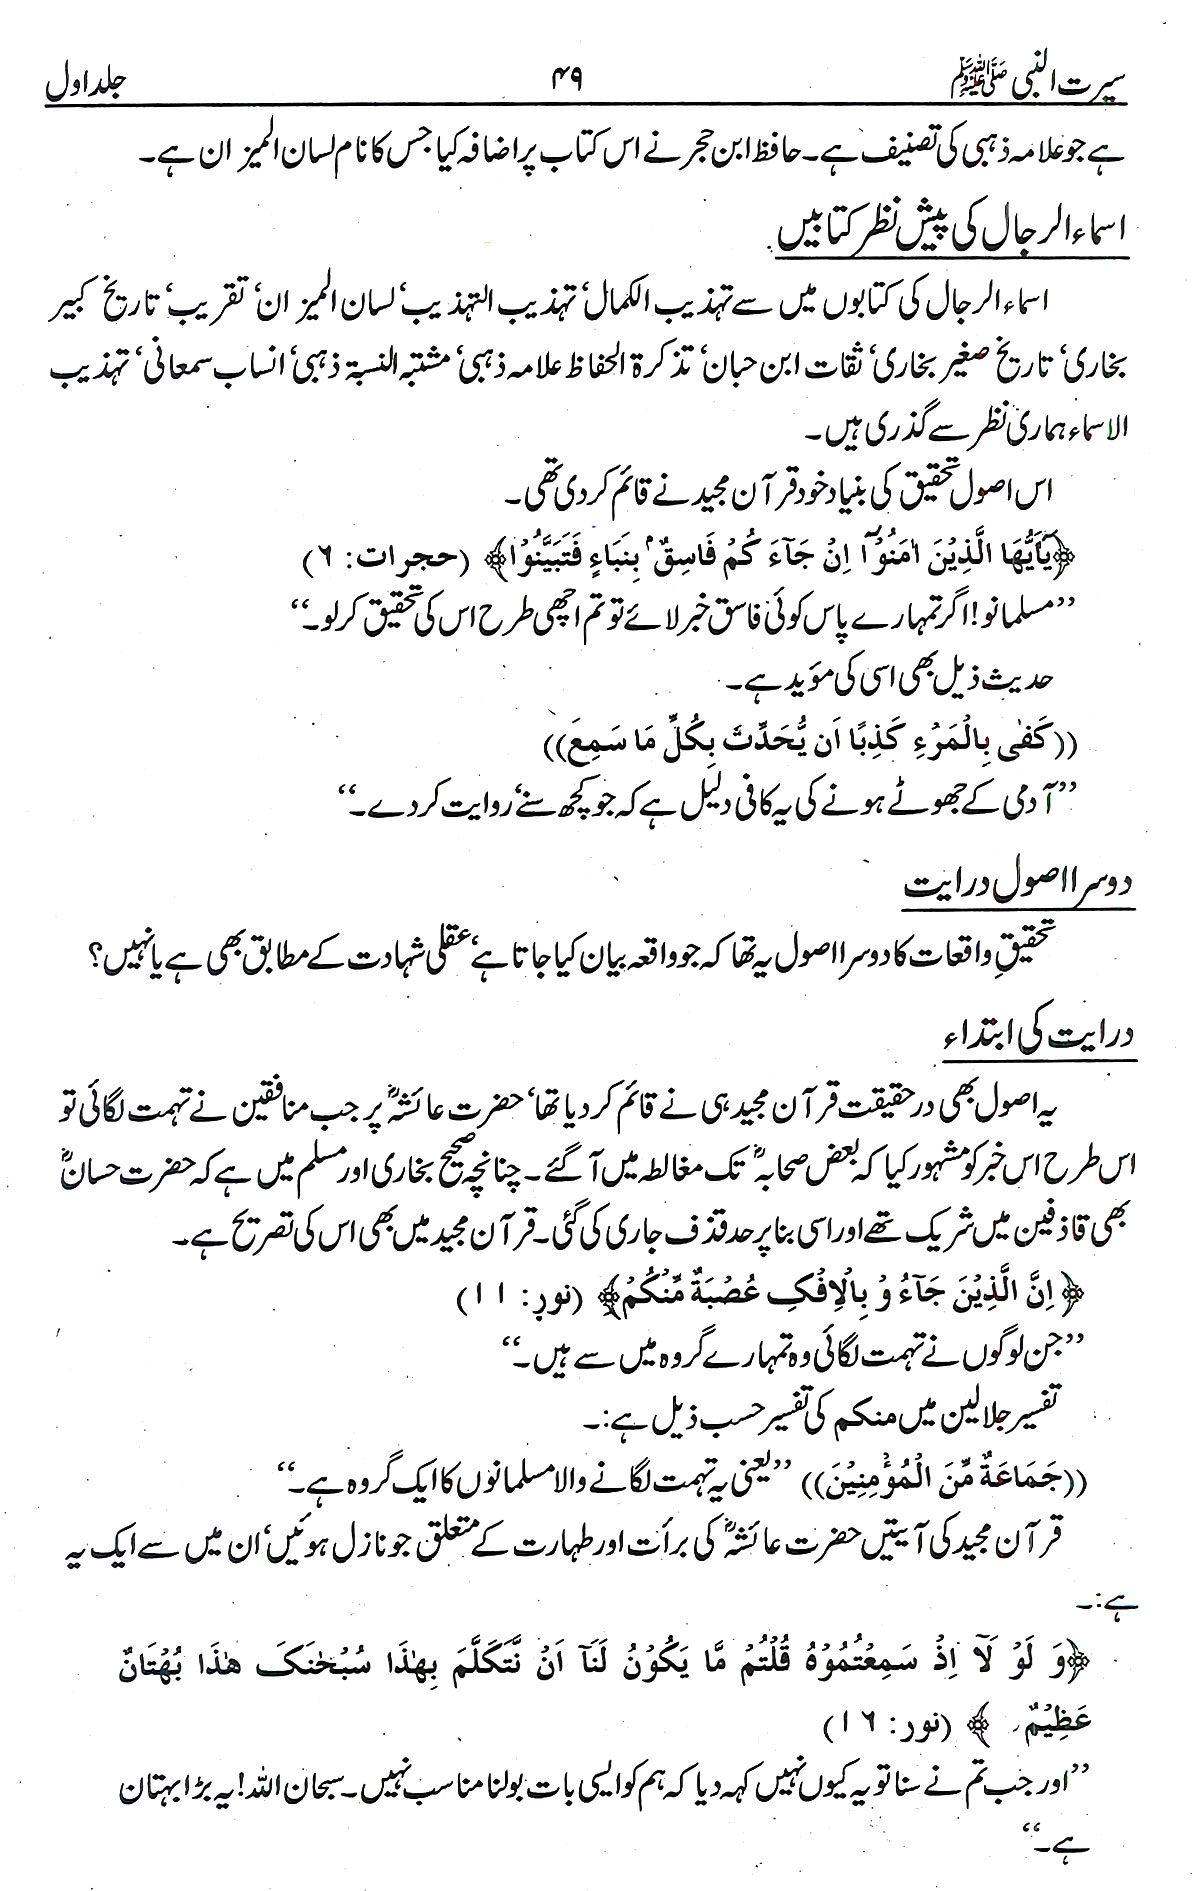 سیرت النبی ﷺ ۴۹ جلد اول
ہے جو علامہ ذہبی کی تصنیف ہے۔ حافظ ابن حجر نے اس کتاب پر اضافہ کیا جس کا نام لسان المیزان ہے۔
اسماء الرجال کی پیش نظر کتابیں
اسماء الرجال کی کتابوں میں سے تہذیب الکمال‘ تہذیب التہذیب‘ لسان المیزان‘ تقریب‘ تاریخ کبیر
بخاری‘ تاریخ صغیر بخاری‘ ثقات ابن حبان‘ تذکرۃ الحفاظ علامہ ذہبی‘ مشتبہ النسبۃ ذہبی‘ انساب سمعانی‘ تہذیب
الاسماء ہماری نظر سے گذری ہیں۔
اس اصول تحقیق کی بنیاد خود قرآن مجید نے قائم کر دی تھی۔
﴿یٰۤاَیُّهَا الَّذِیْنَ اٰمَنُوْۤا اِنْ جَآءَ کُمْ فَاسِقٌۢ بِنَبَاءٍ فَتَبَیَّنُوْا﴾ (حجرات: ٦)
’’مسلمانو! اگر تمہارے پاس کوئی فاسق خبر لائے تو تم اچھی طرح اس کی تحقیق کر لو۔‘‘
حدیث ذیل بھی اسی کی موَید ہے۔
((کَفٰی بِالْمَرْءِ کَذِبًا اَن یُّحَدِّثَ بِکُلِّ مَا سَمِعَ))
’’آدمی کے جھوٹے ہونے کی یہ کافی دلیل ہے کہ جو کچھ سنے‘ روایت کر دے۔‘‘
دوسرا اصول درایت
تحقیقِ واقعات کا دوسرا اصول یہ تھا کہ جو واقعہ بیان کیا جاتا ہے‘ عقلی شہادت کے مطابق بھی ہے یا نہیں؟
درایت کی ابتداء
یہ اصول بھی درحقیقت قرآن مجید ہی نے قائم کر دیا تھا‘ حضرت عائشہؓ پر جب منافقین نے تہمت لگائی تو
اس طرح اس خبر کو مشہور کیا کہ بعض صحابہؓ تک مغالطہ میں آ گئے۔ چنانچہ صحیح بخاری اور مسلم میں ہے کہ حضرت حسانؓ
بھی قاذفین میں شریک تھے اور اسی بنا پر حد قذف جاری کی گئی۔ قرآن مجید میں بھی اس کی تصریح ہے۔
﴿اِنَّ الَّذِیْنَ جَآءُ وْ بِالْاِفْکِ عُصْبَةٌ مِّنْکُمْ﴾ (نور: ١١)
’’جن لوگوں نے تہمت لگائی وہ تمہارے گروہ میں سے ہیں۔‘‘
تفسیر جلالین میں منکم کی تفسیر حسب ذیل ہے:۔
((جَمَاعَةٌ مِّنَ الْمُؤْمِنِیْنَ)) ’’یعنی یہ تہمت لگانے والا مسلمانوں کا ایک گروہ ہے۔‘‘
قرآن مجید کی آیتیں حضرت عائشہؓ کی برأت اور طہارت کے متعلق جو نازل ہوئیں‘ ان میں سے ایک یہ
ہے:۔
﴿وَ لَوْ لَآ اِذْ سَمِعْتُمُوْهُ قُلْتُمْ مَّا یَکُوْنُ لَنَآ اَنْ نَّتَکَلَّمَ بِهٰذَا سُبْحٰنَکَ هٰذَا بُهْتَانٌ
عَظِیْمٌ﴾ (نور: ١٦)
’’اور جب تم نے سنا تو یہ کیوں نہیں کہہ دیا کہ ہم کو ایسی بات بولنا مناسب نہیں۔ سبحان اللہ! یہ بڑا بہتان
ہے۔‘‘